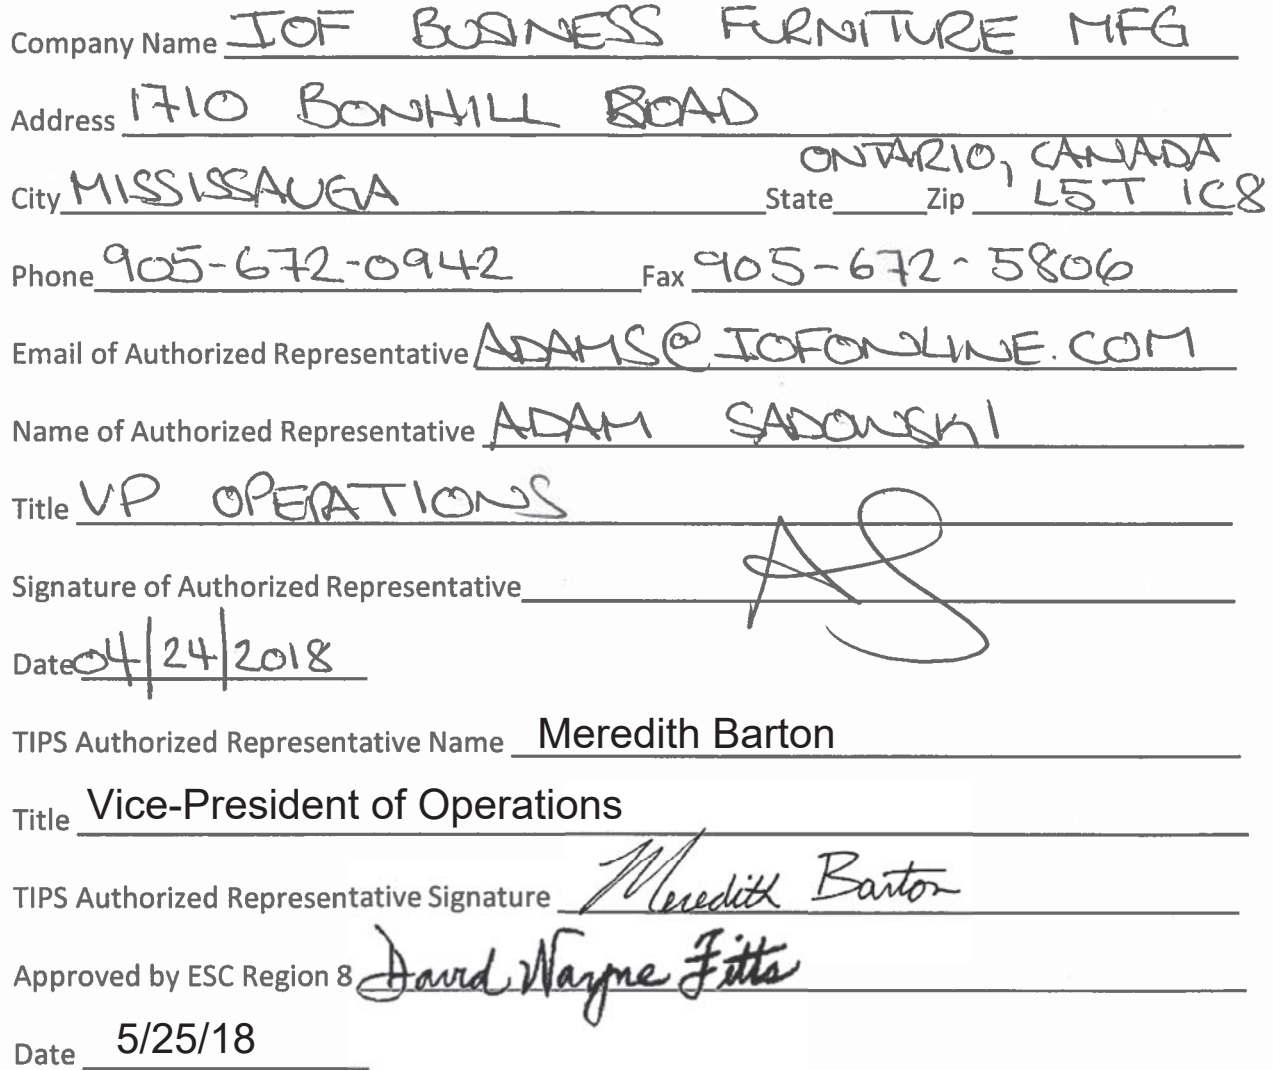 Company Name IOF BUSINESS FURNITURE MFG
Address 1710 BONHILL ROAD
ONTARIO, CANADA
City MISSISSAUGA State Zip L5T 1C8
Phone 905-672-0942 Fax 905-672-5806
Email of Authorized Representative ADAMS@IOFONLINE.COM
Name of Authorized Representative ADAM SADOWSKI
Title VP OPERATIONS
Signature of Authorized Representative AS
Date 04/24/2018
TIPS Authorized Representative Name Meredith Barton
Title Vice-President of Operations
TIPS Authorized Representative Signature Meredith Barton
Approved by ESC Region 8 David Wayne Fitts
Date 5/25/18